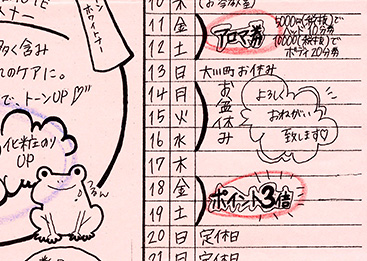 ホワイトナー
多く含み
れのケアに。
で、トーンUP♡
化粧のり
UP
10 木
11 金
12 土
アロマ券
5000円(税抜)で
ハンド10分券
10000(税抜)で
ボディ20分券
13 日 大川町お休み
14 月
15 火
16 水
お盆休み
よろしく
おねがい
致します♡
17 木
18 金
19 土
ポイント3倍
20 日 定休日
21 日 定休日